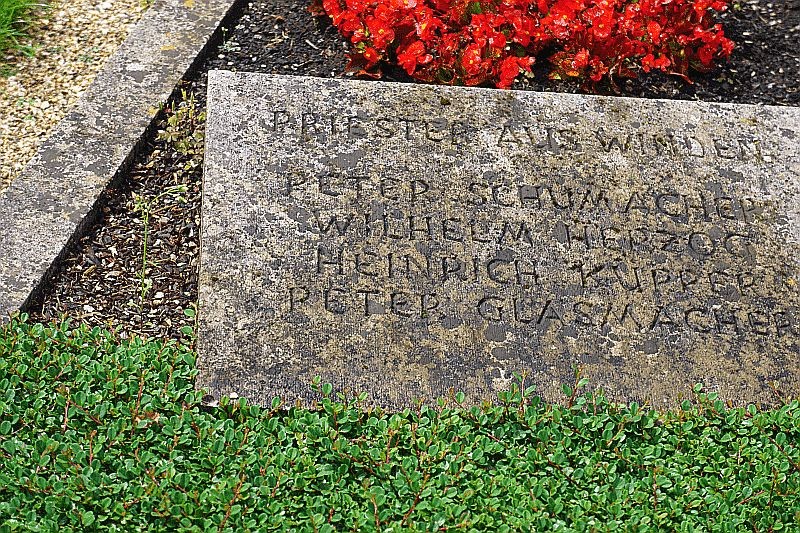 PRIESTER AUS WINDEN
PETER SCHUMACHER
WILHELM HERZOG
HEINRICH KÜPPER
PETER GLASMACHER